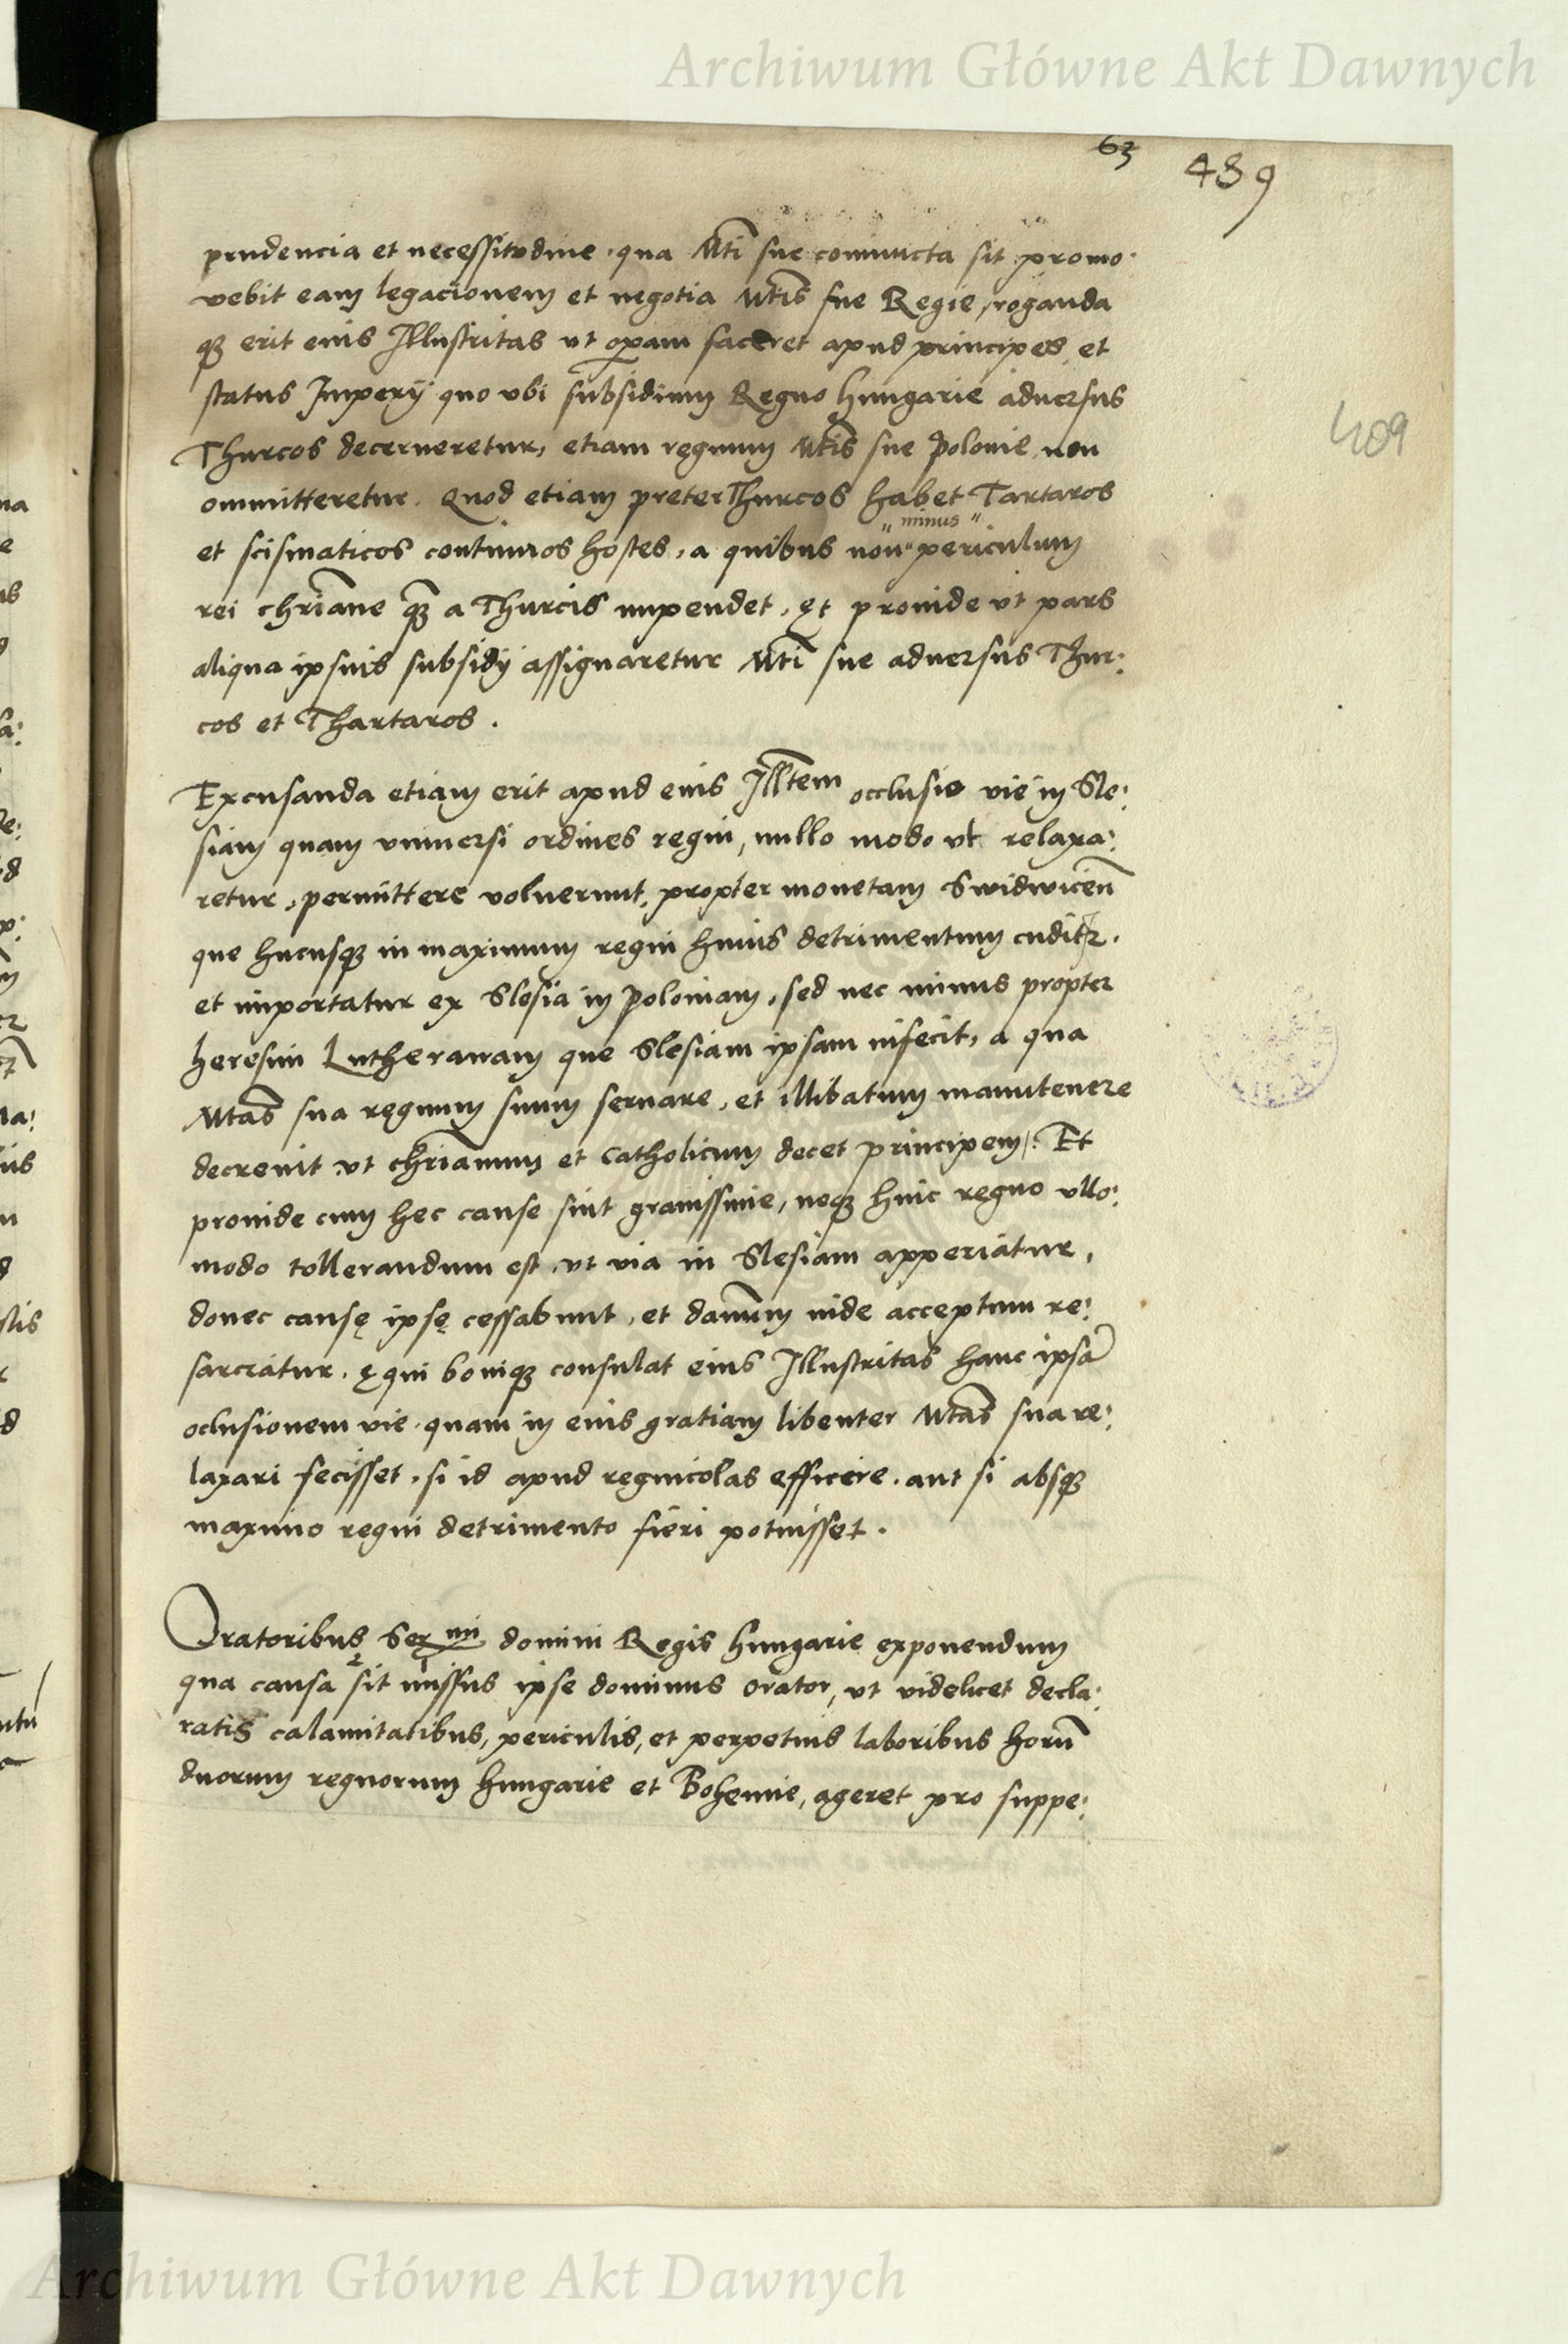 Archiwum Główne Akt Dawnych
63 439
prudencia et necessitudine, qua Mti sue coniuncta sit promo:
vebit eam legacionem et negotia Mtis sue Regie, roganda
q3 erit eius Illustritas ut operam faceret apud principes, et
status Imperij quo vbi subsidium Regno Hungarie aduersus
Thurcos decerneretur, etiam regnum Mtis sue Polonie non
ommitteretur. Quod etiam preter Thurcos habet Tartaros
minus
et scismaticos continuos hostes, a quibus non periculum
rei chriane q3 a Thurcis impendet, et proinde ut pars
aliqua ipsius subsidij assignaretur Mti sue aduersus Thur:
cos et Thartaros.
409
Excusanda etiam erit apud eius Illtem occlusio vie in Sle:
siam quam vniuersi ordines regni, nullo modo ut relaxa:
retur, permittere voluerunt, propter monetam Swidwicen
que hucusq3 in maximum regni huius detrimentum cuditr.
et importatur ex Slesia in Poloniam, sed nec minus propter
heresim Lutheranam que Slesiam ipsam infecit, a qua
Mtas sua regnum suum seruare, et illibatum manutenere
decreuit ut chrianum et catholicum decet principem. Et
proinde cum hec cause sint grauissime, neq3 huic regno vllo:
modo tollerandum est, ut via in Slesiam apperiatur,
donec causę ipsę cessabunt, et damnum inde acceptum re:
sarciatur. ęqui boniq3 consulat eius Illustritas hanc ipsā
oclusionem vie, quam in eius gratiam libenter Mtas sua re:
laxari fecisset, si id apud regnicolas efficere, aut si absq3
maximo regni detrimento fieri potuisset.
Oratoribus Sermi domini Regis Hungarie exponendum
qua causa sit missus ipse dominus orator, ut videlicet decla:
ratis calamitatibus, periculis, et perpetuis laboribus horū
duorum regnorum Hungarie et Bohemie, ageret pro suppe:
Archiwum Główne Akt Dawnych